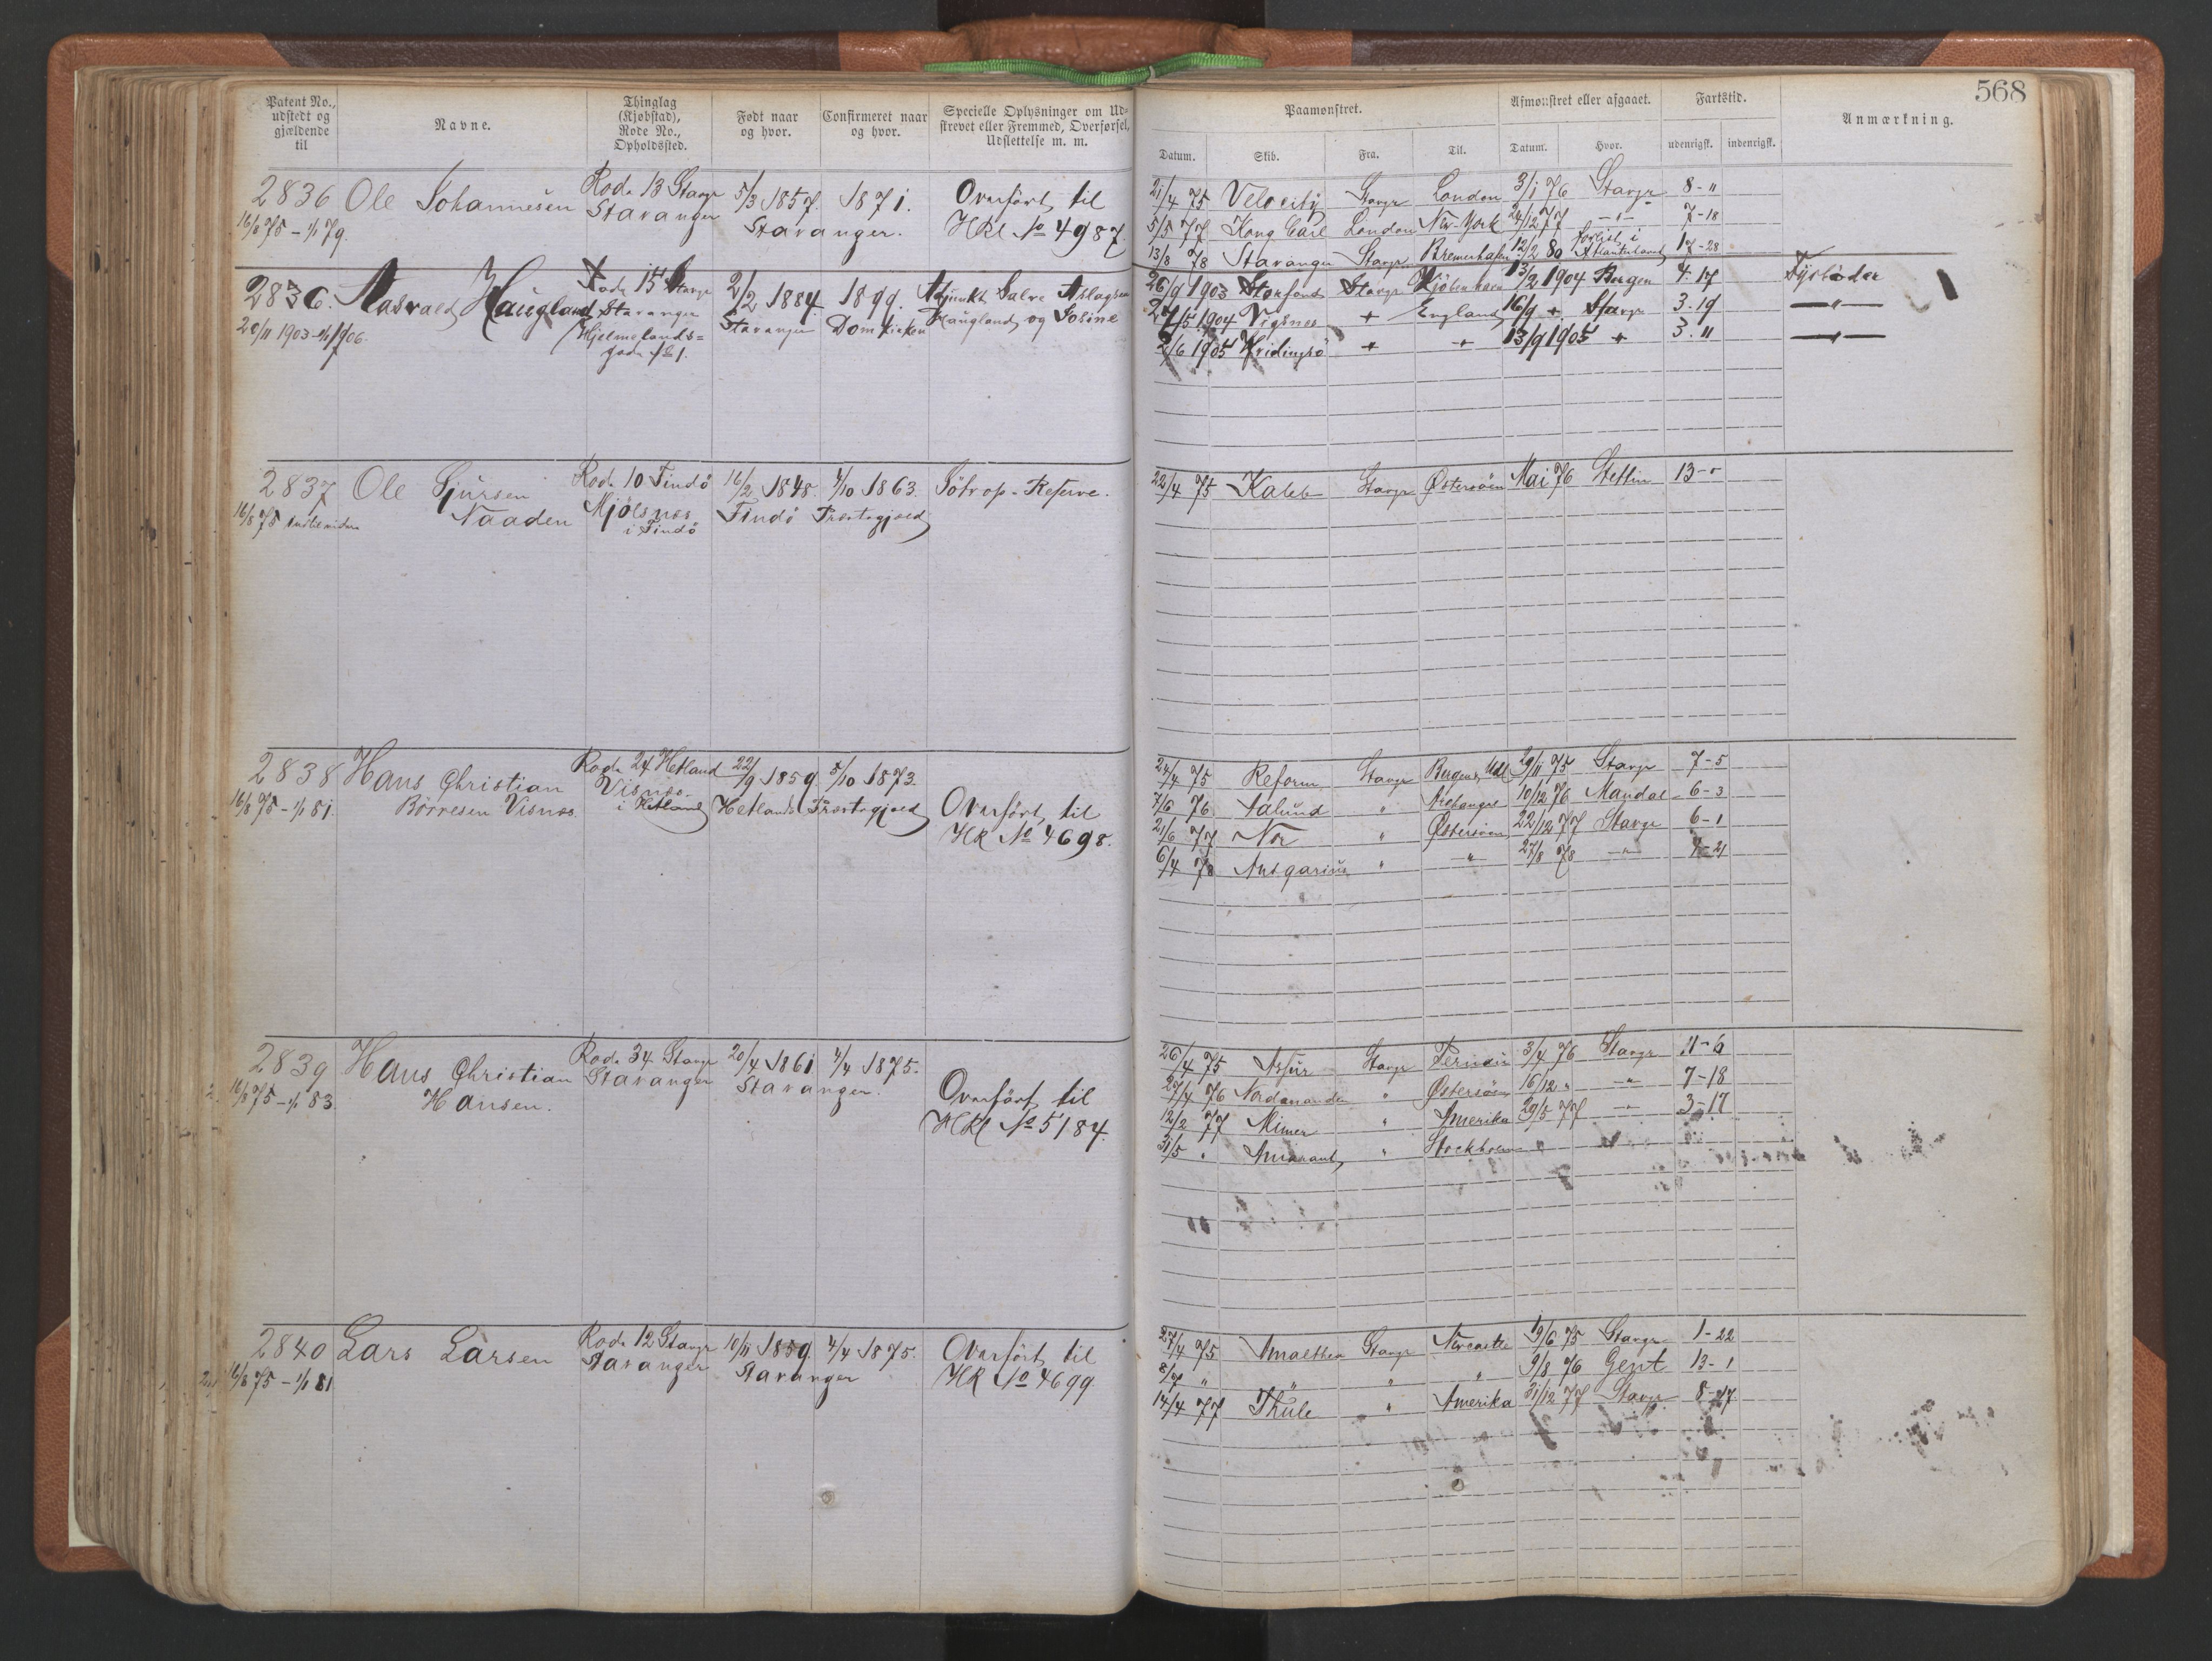 568
Patent No., udstedt og gjældende til
Navne.
Thinglag (Kjøbstad), Rode No., Opholdssted.
Født naar og hvor.
Confirmeret naar og hvor.
Specielle Oplysninger om Udstrevet eller Fremmed, Overførsel, Udslettelse m. m.
Paamønstret.
Afmønstret eller afgaaet.
Fartstid.
Anmærkning.
Datum. Skib. Fra. Til. Datum. Hvor. udenrigsk. indenrigsk.
2836 Ole Johannesen Rode 13 Stavgr 5/3 1857. 1871. Overført til
16/8 75 - 1/1 79. Stavanger Stavanger. HRl No 4987.
21/4 75 Velocity Stavgr London 3/1 76 Stavgr 8-"
5/5 77 Kong Carl London New-York 24/12 77 -"- 7-18
13/8 78 Stavanger Stavgr Bremerhafen 12/2 80 forlist i Atlanterhavet 17-28
2836. Aasvald Haugland Rode 15 Stavgr 2/2 1884. 1899. Adjunkt Salve Aslagsen
20/11 1903-1/1 1906. Stavanger Stavanger Domkirken Haugland og Josine
Hjelmelands=
gade No 1.
26/9 1903 Storfond Stavgr Kjøbenhavn 13/2 1904 Bergen 4.17 Fyrbøder
27/5 1904 Vigsnes + England 16/9 + Stavgr 3.19 -"-
2/6 1905 Hvidingsø + + 13/9 1905 + 3.11 -"-
2837 Ole Sjursen Rode 10 Findö 16/2 1848. 4/10 1863. Søtrop-Reserve.
16/8 75 Naaden Mjølsnes Findö Præstegjæld
i Findö
22/4 75 Kaleb Stavgr Østersøen Mai 76 Stettin 13-"
2838 Hans Christian Rode 24 Hetland 22/9 1859. 5/10 1873.
16/8 75 - 1/1 81. Börresen Visnæs. Visnæs. Hetlands Præstegjæld Overført til
i Hetland HR No 4698.
24/4 75 Reform Stavgr 29/11 75 Stavgr 7-5
7/6 76 " Archangel 10/12 76 Mandal 6-3
21/6 77 Nor " Østersøen 22/12 77 Stavgr 6-1
6/4 78 Ansgarius " -"- 27/8 78 -"- 4-21
2839 Hans Christian Rode 34 Stavgr 20/4 1861 4/4 1875.
16/8 75 - 1/1 83. Hansen. Stavanger Stavanger. Overført til
HRl No 5184.
26/4 75 Asfur Stavgr Pernau 3/4 76 Stavgr 11-6
27/4 76 " Østersøen 16/12 " -"- 7-18
12/2 77 Mimer " Amerika 29/5 77 -"- 3-17
31/5 " Amarant " Stockholm
2840 Lars Larsen Rode 12 Stavgr 10/11 1859. 4/4 1875. Overført til
16/8 75 - 1/1 81 Stavanger Stavanger HR No 4699.
27/4 75 Amalthea Stavgr Newcastle 19/6 75 Stavgr 1-22
8/7 " " " " 9/8 76 Gent 13-1
14/4 77 Thule " Amerika 31/12 77 Stavgr 8-17